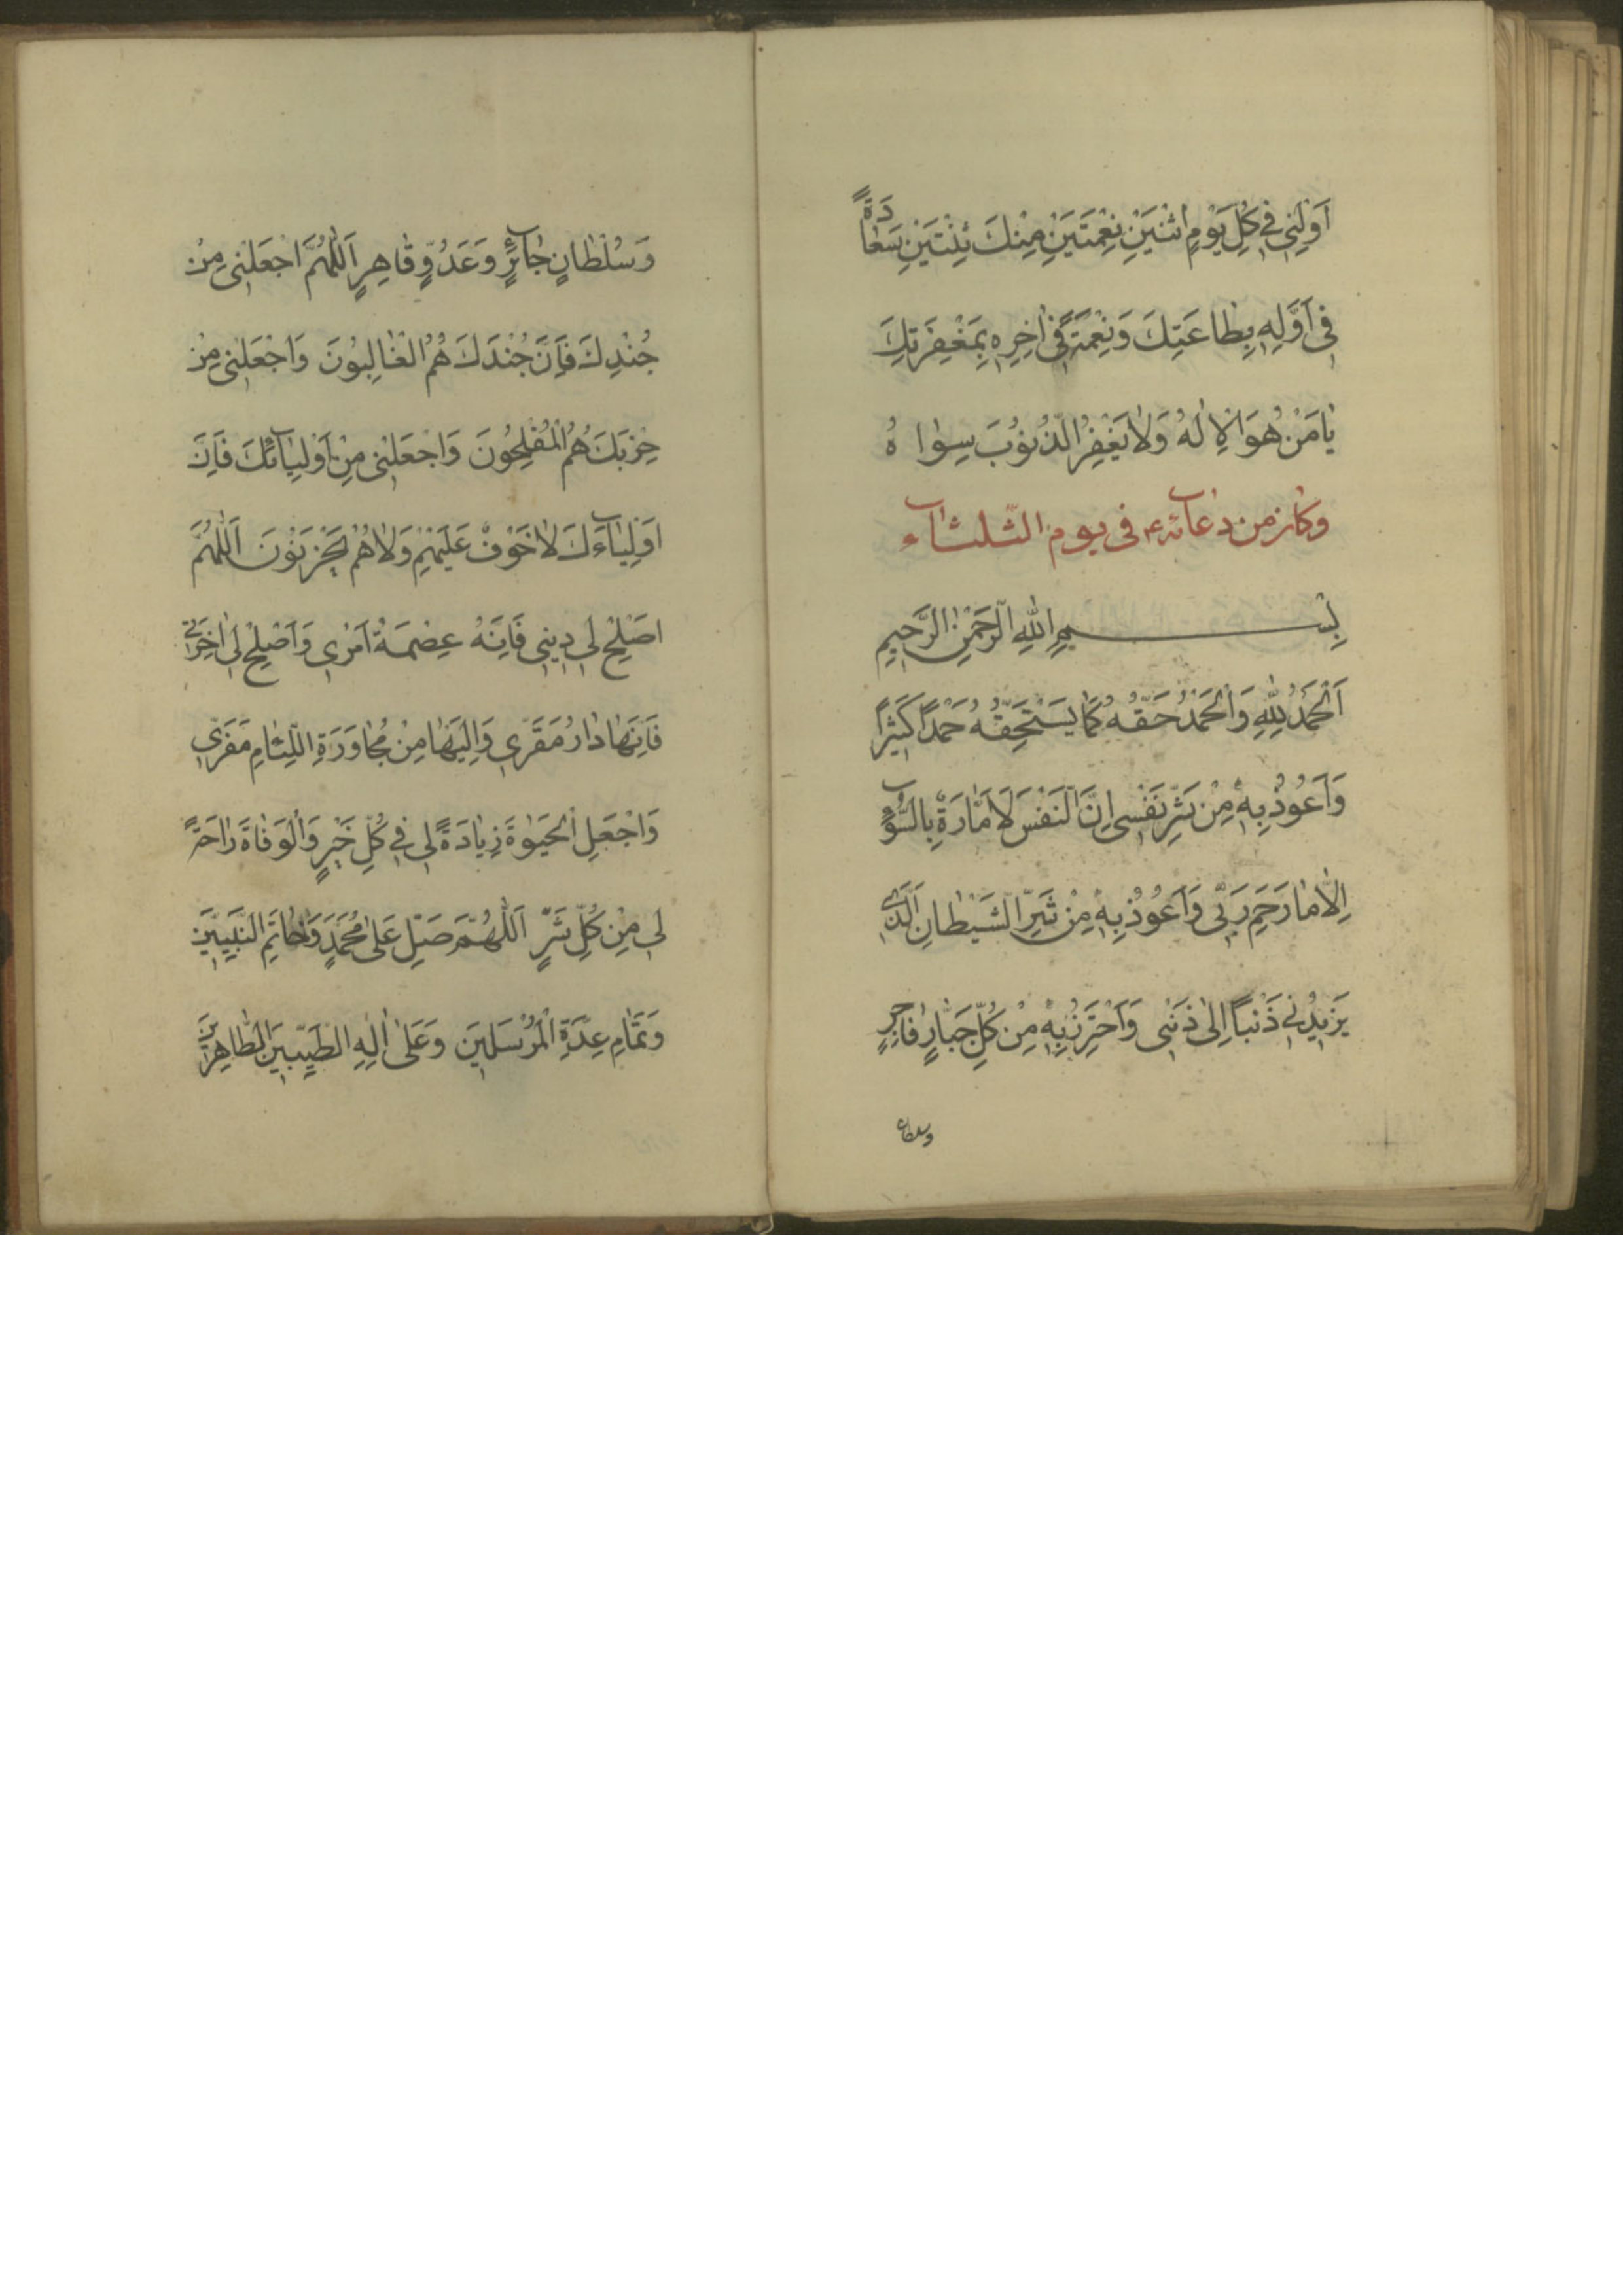 اَوْلِنِى فِى كُلِّ يَوْمِ اثْنَيْنِ نِعْمَتَيْنِ مِنْكَ ثِنْتَيْنِ سَعَادَةً
فِى اَوَّلِهِ بِطَاعَتِكَ وَنِعْمَةً فِى اٰخِرِهِ بِمَغْفِرَتِكَ
يَا مَنْ هُوَ الْاِلٰهُ وَلَا يَغْفِرُ الذُّنُوبَ سِوَاهُ
وكان من دعائه ع فى يوم الثلثاء
بِسْمِ اللّٰهِ الرَّحْمٰنِ الرَّحِيمِ
اَلْحَمْدُ لِلّٰهِ وَالْحَمْدُ حَقُّهُ كَمَا يَسْتَحِقُّهُ حَمْدًا كَثِيرًا
وَاَعُوذُ بِهِ مِنْ شَرِّ نَفْسِى اِنَّ النَّفْسَ لَاَمَّارَةٌ بِالسُّوءِ
اِلَّا مَا رَحِمَ رَبِّى وَاَعُوذُ بِهِ مِنْ شَرِّ الشَّيْطَانِ الَّذِى
يَزِيدُنِى ذَنْبًا اِلٰى ذَنْبِى وَاَحْتَرِزُ بِهِ مِنْ كُلِّ جَبَّارٍ فَاجِرٍ
وسلطان
وَسُلْطَانٍ جَائِرٍ وَعَدُوٍّ قَاهِرٍ اَللّٰهُمَّ اجْعَلْنِى مِنْ
جُنْدِكَ فَاِنَّ جُنْدَكَ هُمُ الْغَالِبُونَ وَاجْعَلْنِى مِنْ
حِزْبِكَ هُمُ الْمُفْلِحُونَ وَاجْعَلْنِى مِنْ اَوْلِيَائِكَ فَاِنَّ
اَوْلِيَاءَكَ لَا خَوْفٌ عَلَيْهِمْ وَلَا هُمْ يَحْزَنُونَ اَللّٰهُمَّ
اصْلِحْ لِى دِينِى فَاِنَّهُ عِصْمَةُ اَمْرِى وَاَصْلِحْ لِى اٰخِرَتِى
فَاِنَّهَا دَارُ مَقَرِّى وَاِلَيْهَا مِنْ مُجَاوَرَةِ اللِّئَامِ مَفَرِّى
وَاجْعَلِ الْحَيٰوةَ زِيَادَةً لِى فِى كُلِّ خَيْرٍ وَالْوَفَاةَ رَاحَةً
لِى مِنْ كُلِّ شَرٍّ اَللّٰهُمَّ صَلِّ عَلٰى مُحَمَّدٍ وَخَاتَمِ النَّبِيِّينَ
وَتَمَامِ عِدَّةِ الْمُرْسَلِينَ وَعَلٰى اٰلِهِ الطَّيِّبِينَ الطَّاهِرِينَ